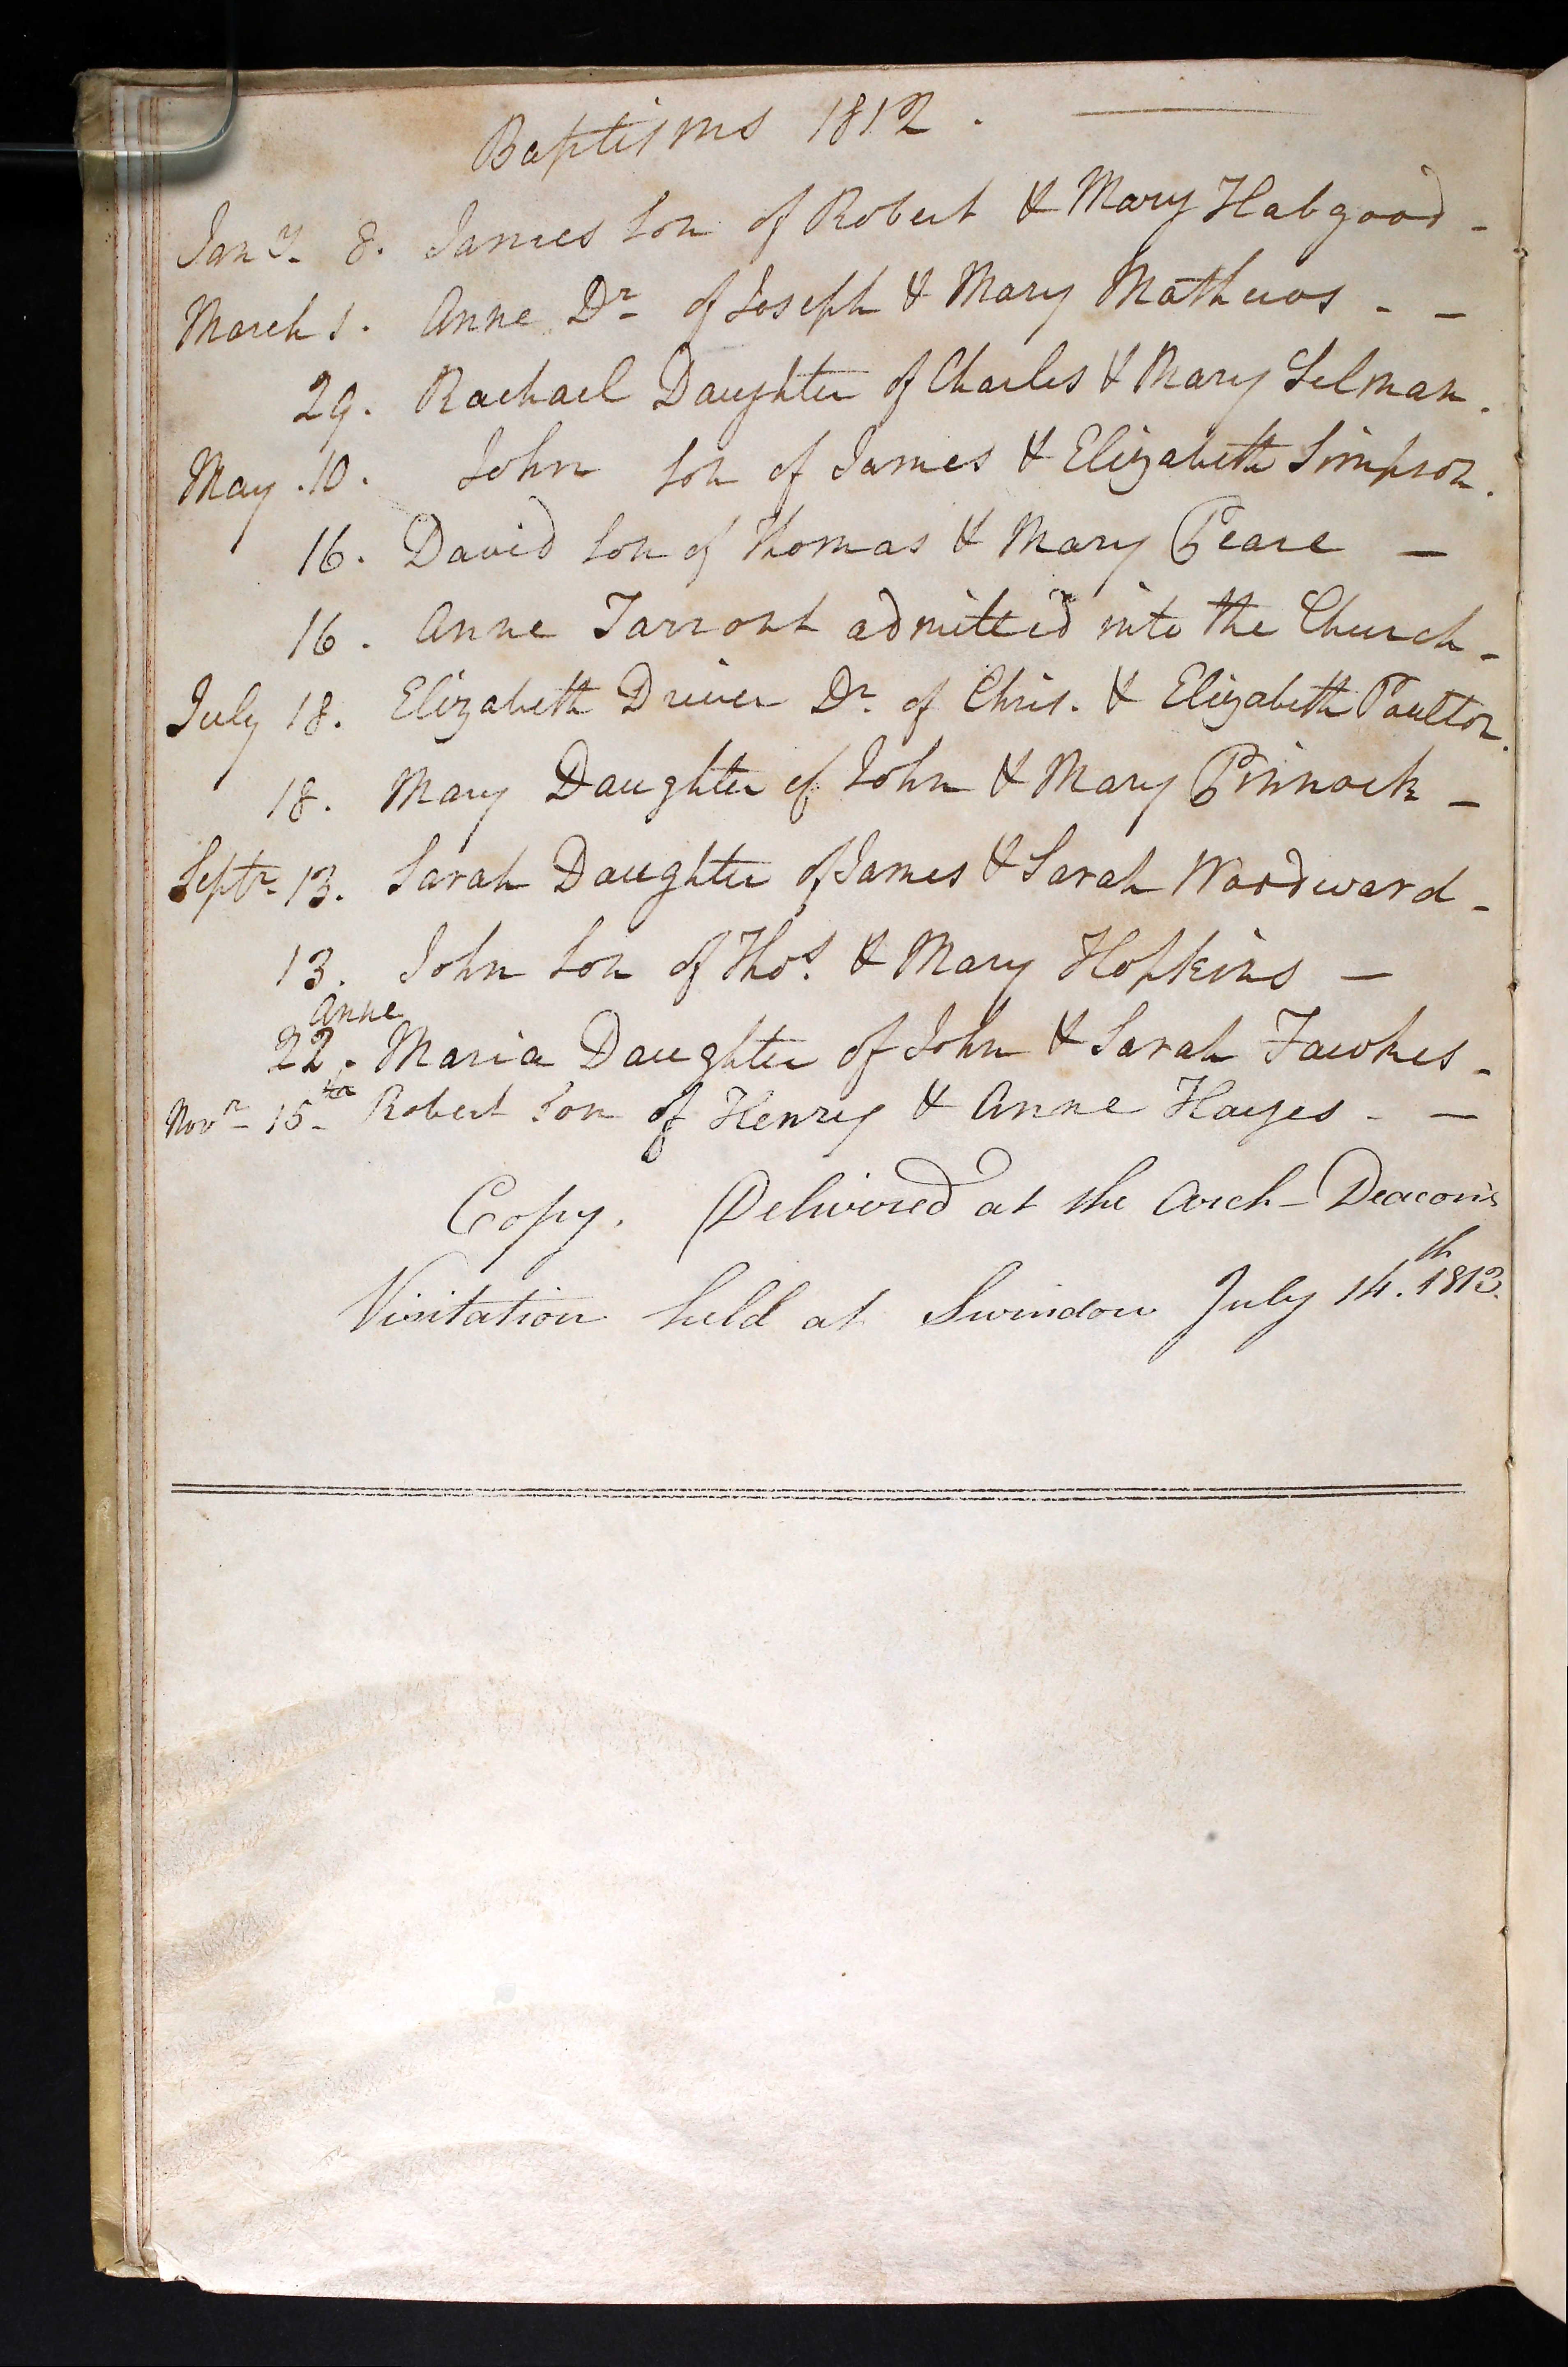 Baptisms 1812.
Jany. 8. James Son of Robert & Mary Habgood -
March 1. Anne Dr of Joseph & Mary Mathews - -
29. Rachael Daughter of Charles & Mary Selman.
May. 10. John Son of James & Elizabeth Simpson.
16. David Son of Thomas & Mary Peare -
16. Anne Tarrant admitted into the Church -
July 18. Elizabeth Driver Dr. of Chris. & Elizabeth Paulton.
18. Mary Daughter of John & Mary Pinnock -
Septr 13. Sarah Daughter of James & Sarah Woodward -
13. John Son of Thos. & Mary Hopkins -
Anne
22. Maria Daughter of John & Sarah Fawkes -
Novr 15th Robert Son of Henry & Anne Hayes - -
Copy. Delivered at the Arch-Deacon's
Visitation held at Swindon July 14.th 1813.